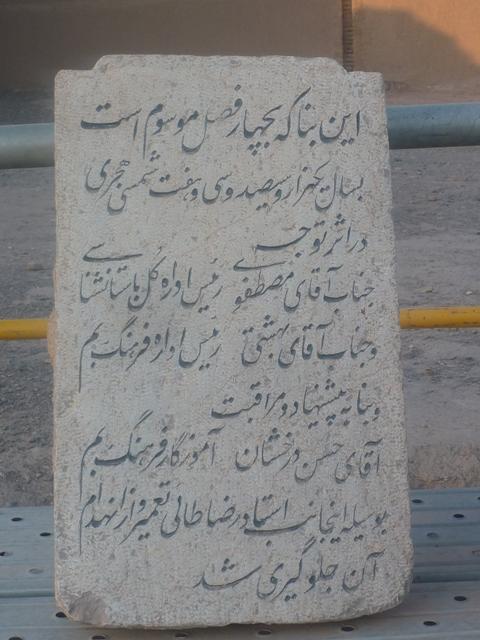 این بنا که بچهار فصل موسوم است
بسال یکهزار و سیصد و سی و هفت شمسی هجری
در اثر توجه
جناب آقای مصطفوی رئیس اداره کل باستانشناسی
و جناب آقای بهشتی رئیس اداره فرهنگ بم
و بنا به پیشنهاد و مراقبت
آقای حسن درخشان آموزگار فرهنگ بم
بوسیله اینجانب استاد رضا طائی تعمیر و از انهدام
آن جلوگیری شد